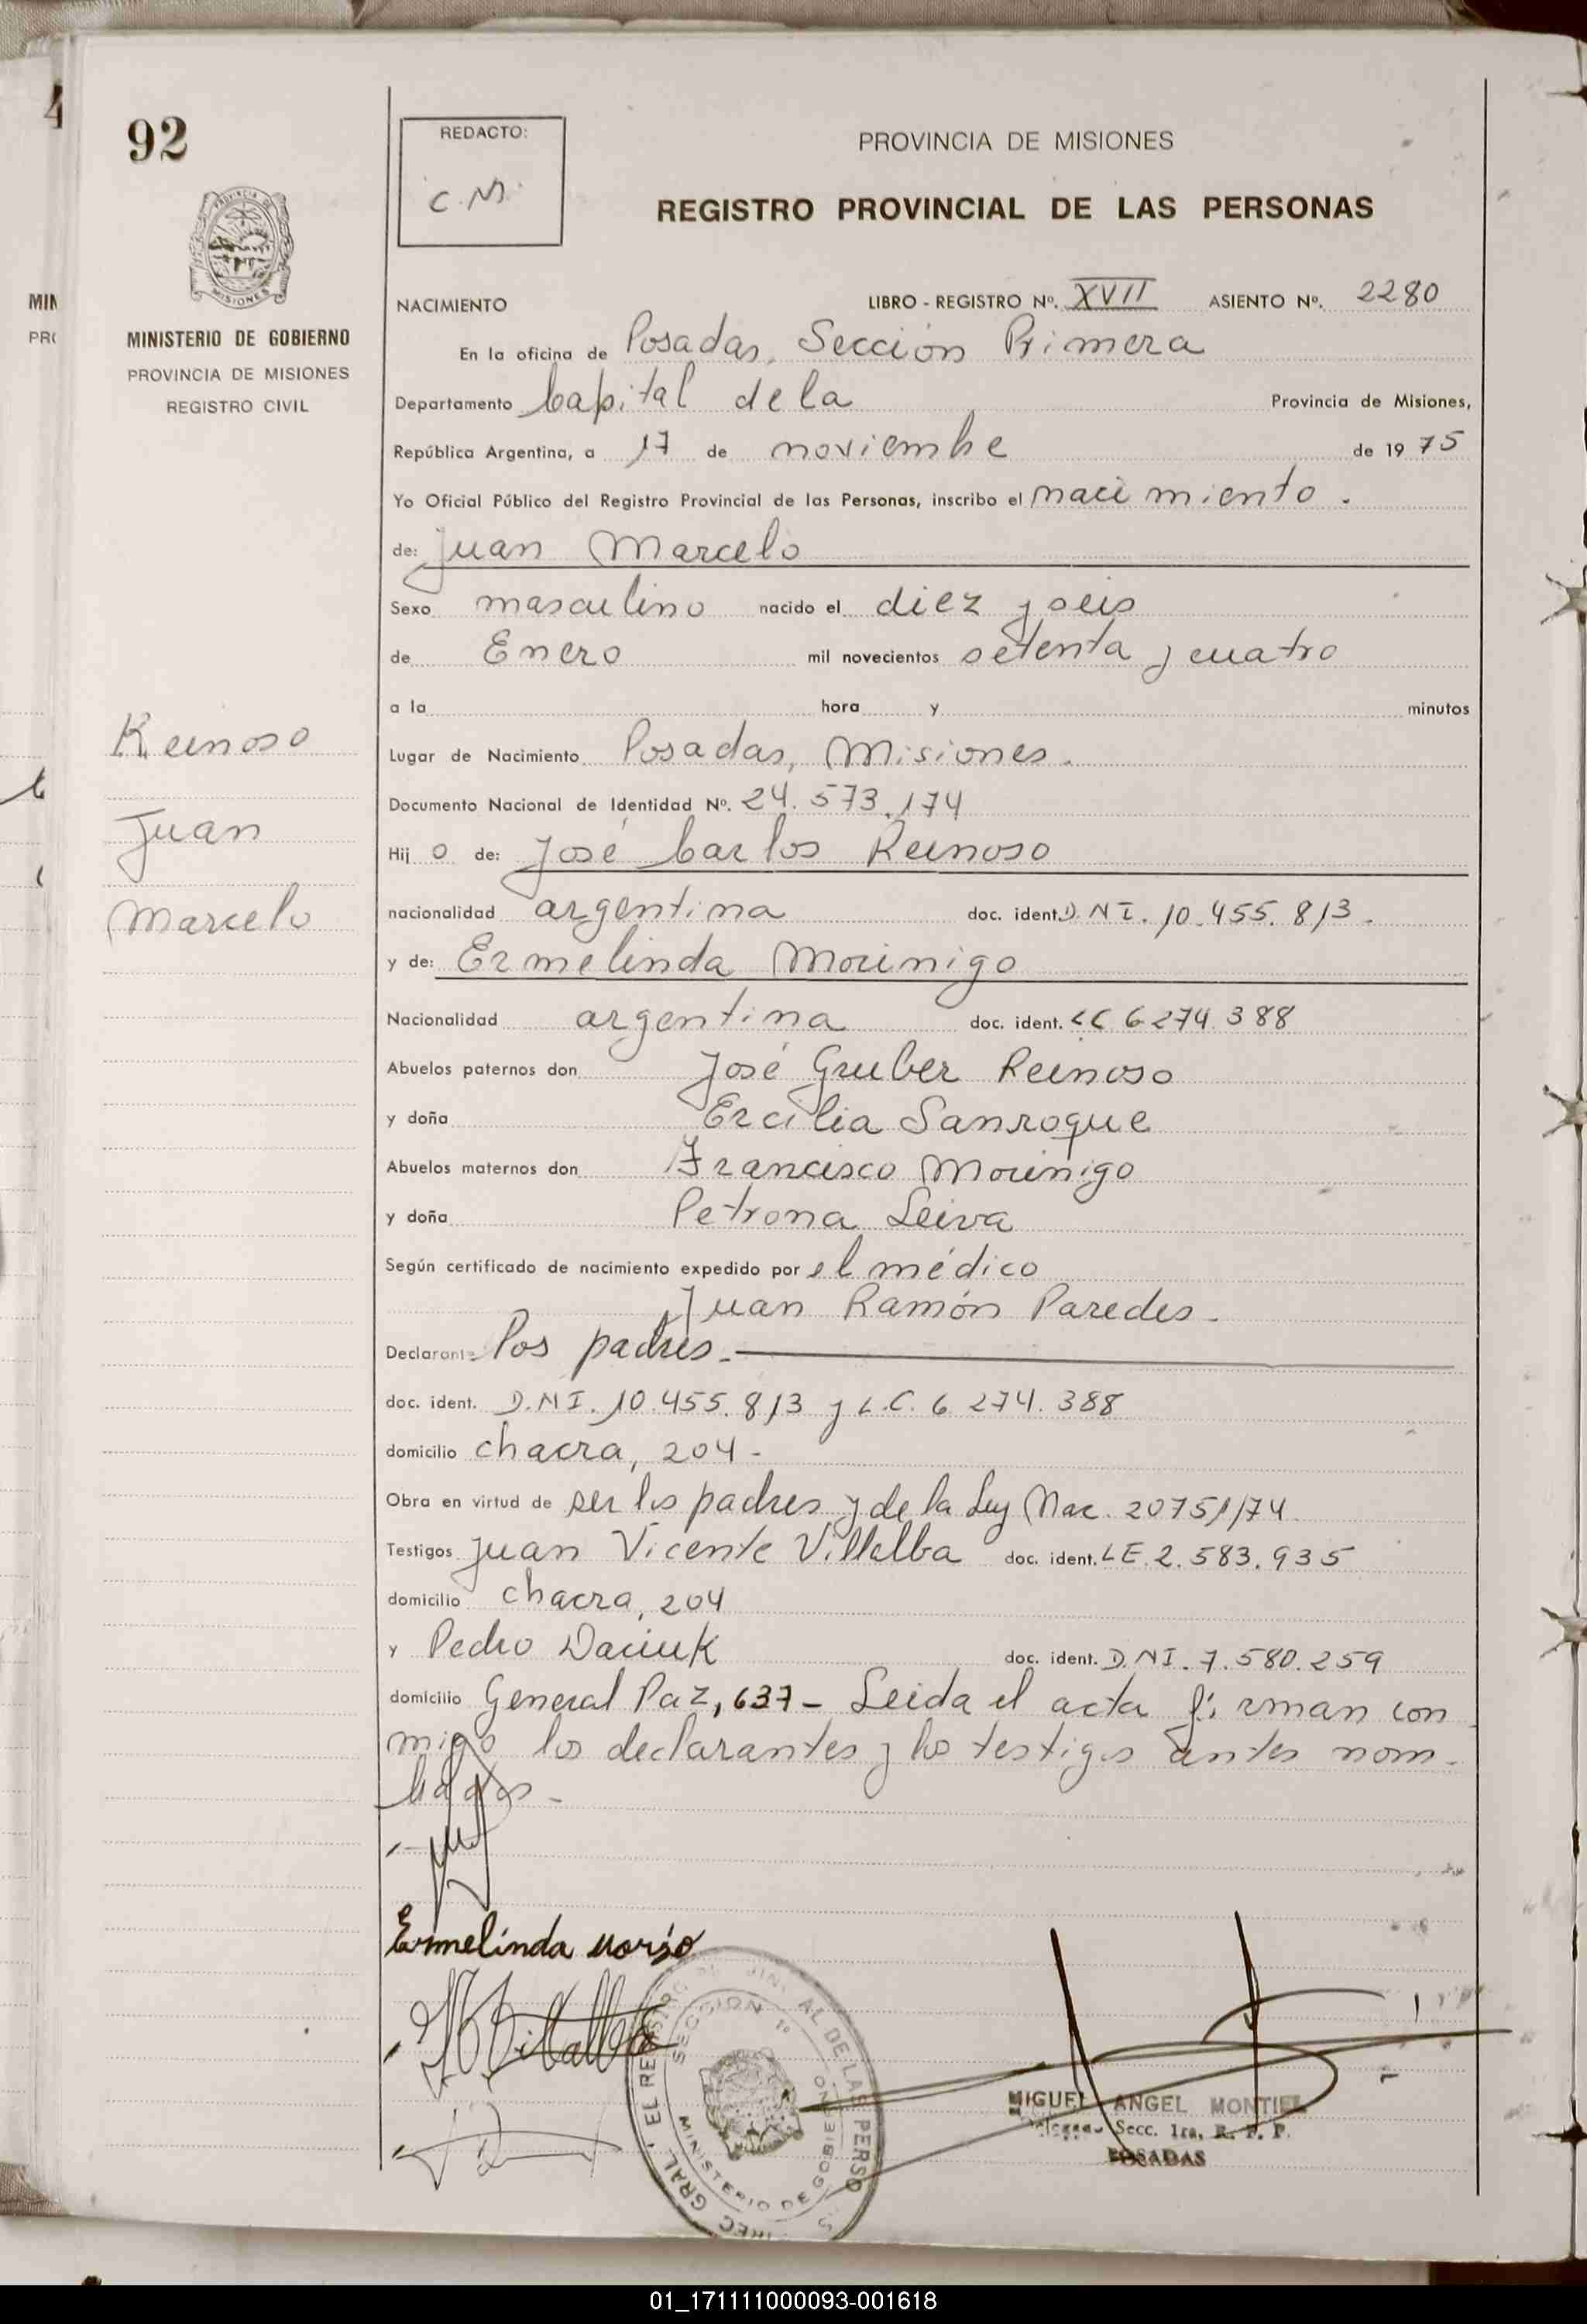 92
REDACTO:
C.M.
PROVINCIA DE MISIONES
REGISTRO PROVINCIAL DE LAS PERSONAS
MISIONES
MINISTERIO DE GOBIERNO
PROVINCIA DE MISIONES
REGISTRO CIVIL
NACIMIENTO LIBRO - REGISTRO Nº. XVII ASIENTO Nº. 2280
En la oficina de Posadas, Sección Primera
Departamento Capital de la Provincia de Misiones,
República Argentina, a 17 de noviembre de 1975
Yo Oficial Público del Registro Provincial de las Personas, inscribo el nacimiento.
de: Juan Marcelo
Sexo masculino nacido el diez y seis
de Enero mil novecientos setenta y cuatro
a la hora y minutos
Reinoso
Juan
Marcelo
Lugar de Nacimiento Posadas, Misiones.
Documento Nacional de Identidad Nº. 24.573.174
Hij o de: José Carlos Reinoso
nacionalidad argentina doc. ident. D.N I. 10.455.813.
y de: Ermelinda Morinigo
Nacionalidad argentina doc. ident. LC 6274.388
Abuelos paternos don José Gruber Reinoso
y doña Ercilia Sanroque
Abuelos maternos don Francisco Morinigo
y doña Petrona Leiva
Según certificado de nacimiento expedido por el médico
Juan Ramón Paredes.
Declarante Los padres.
doc. ident. D.N I. 10.455.813 y L.C. 6.274.388
domicilio chacra, 204 -
Obra en virtud de ser los padres y de la Ley Nac. 20751/74
Testigos Juan Vicente Villalba doc. ident. LE.2.583.935
domicilio chacra, 204
y Pedro Daciuk doc. ident. D.NI.7.580.259
domicilio General Paz, 637 - Leida el acta firman con
migo los declarantes y los testigos antes nom-
brados -
Ermelinda
Villalba
SECCION 1º
MINISTERIO DE GOBIERNO
MIGUEL ANGEL MONTIEL
Secc. 1ra. R. P. P.
POSADAS
01_171111000093-001618